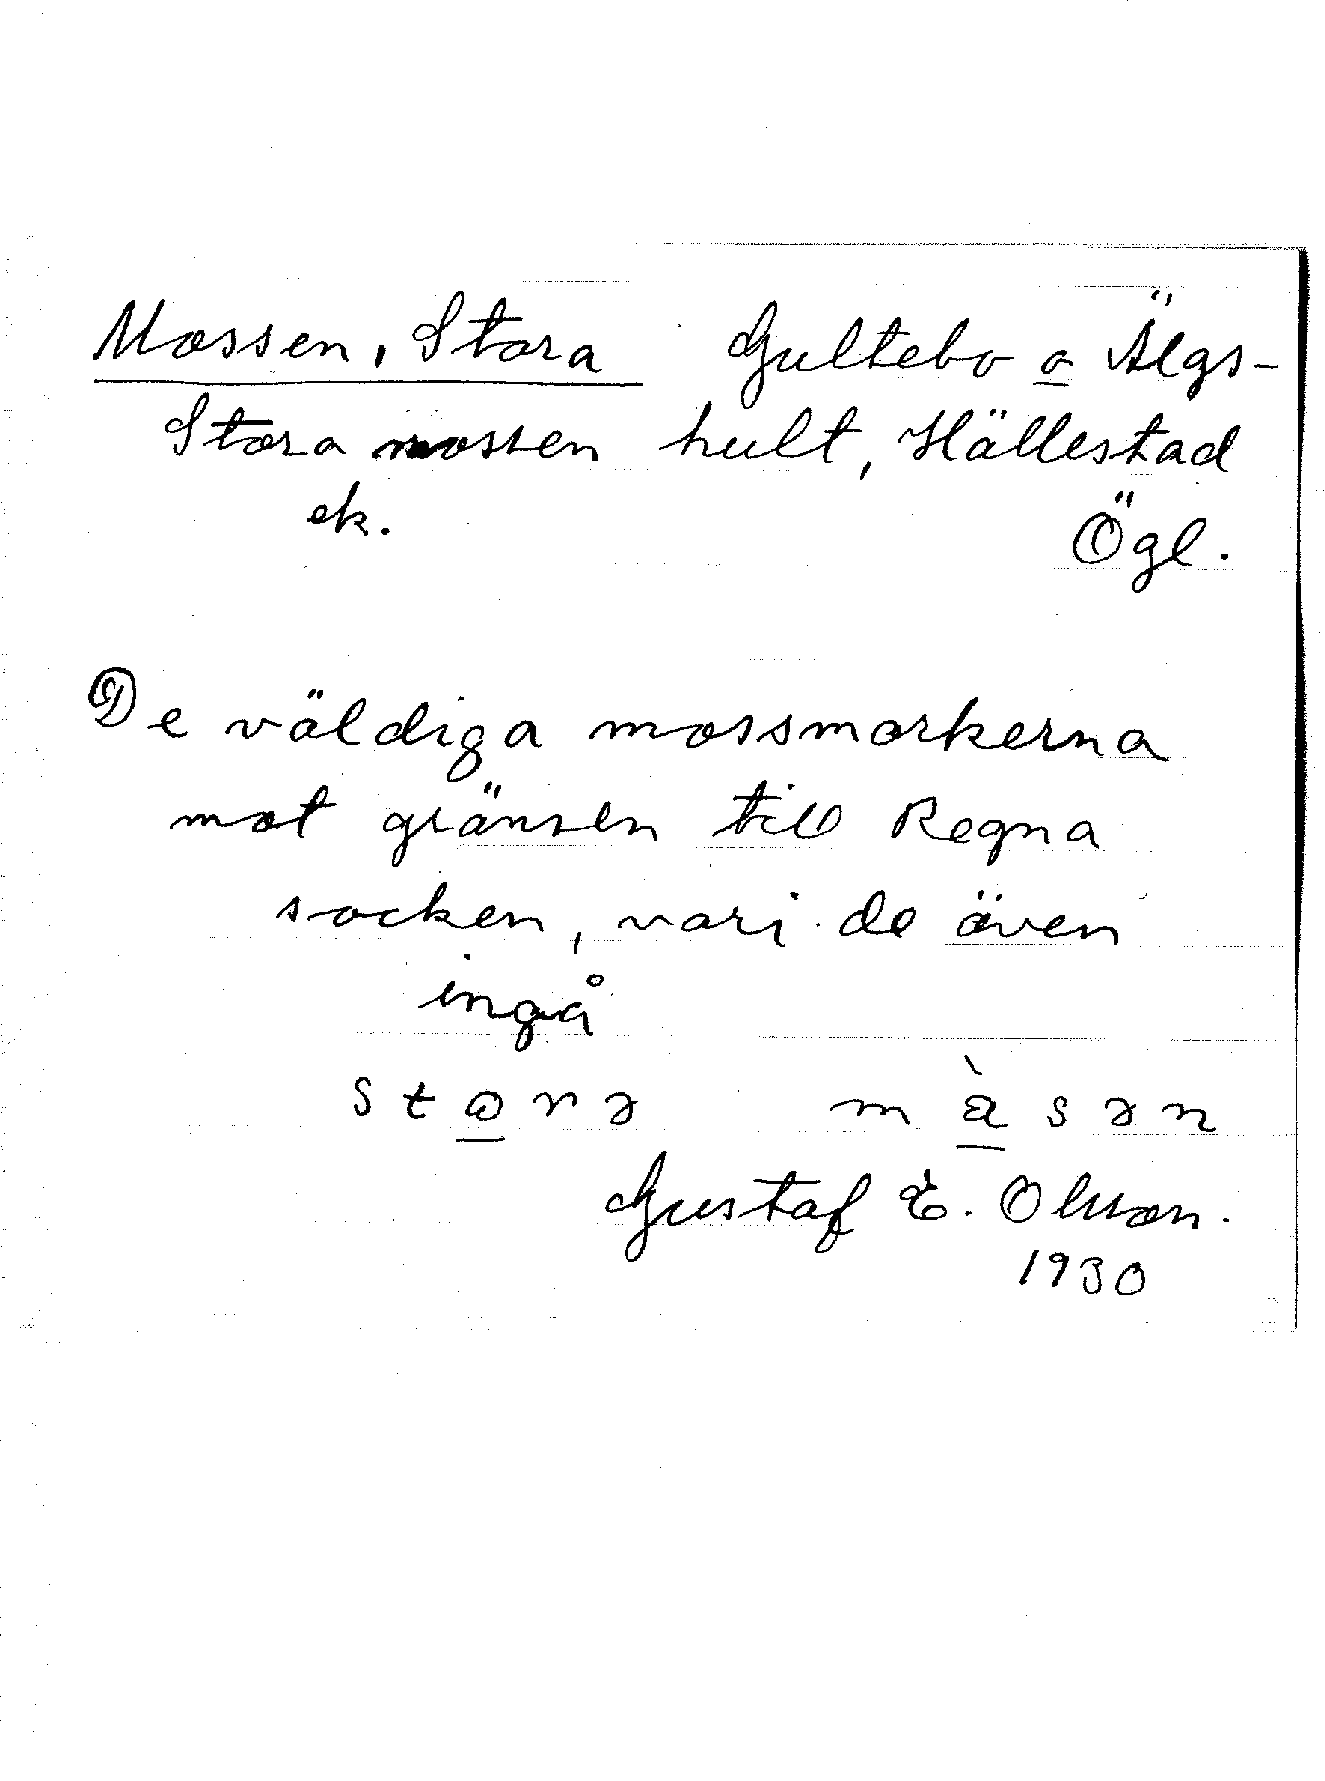 Mossen, Stora Gultebo o Älgs-
Stora mossen hult, Hällestad
ek. Ögl.
De väldiga mossmarkerna
mot gränsen till Regna
socken, vari de även
ingå
stɷrə måsən
Gustaf E. Olsson.
1930